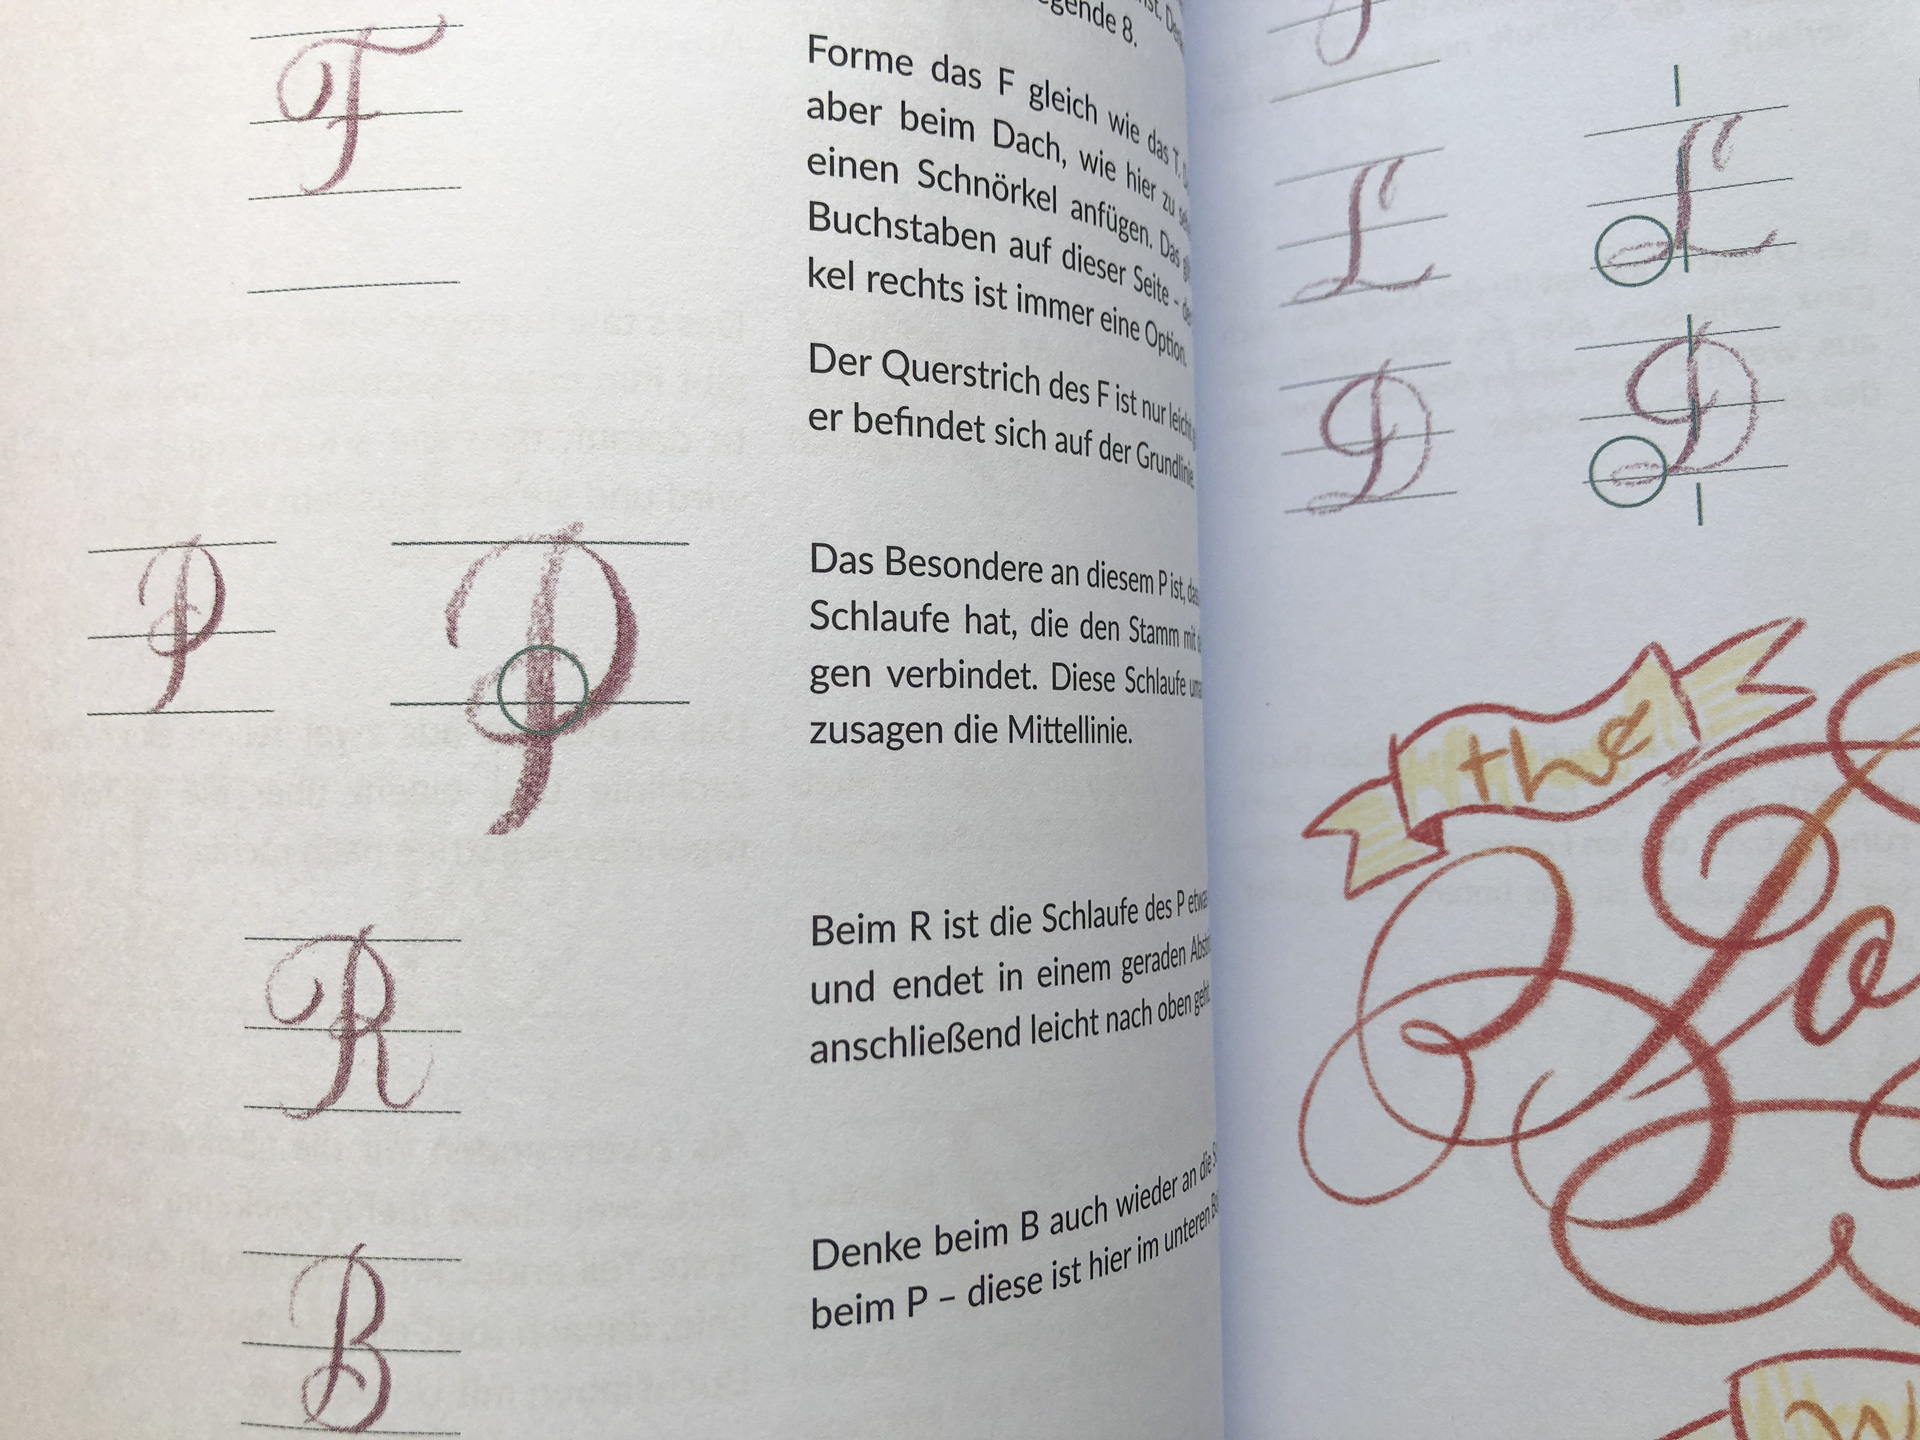 gende 8.
F
Forme das F gleich wie das T.
aber beim Dach, wie hier zu
einen Schnörkel anfügen. Das
Buchstaben auf dieser Seite –
kel rechts ist immer eine Option.
Der Querstrich des F ist nur leicht
er befindet sich auf der Grundlinie.
P P
Das Besondere an diesem P ist,
Schlaufe hat, die den Stamm mit
gen verbindet. Diese Schlaufe
zusagen die Mittellinie.
R
Beim R ist die Schlaufe des P
und endet in einem geraden
anschließend leicht nach oben geht.
B
Denke beim B auch wieder an die
beim P – diese ist hier im unteren
L L
D D
the